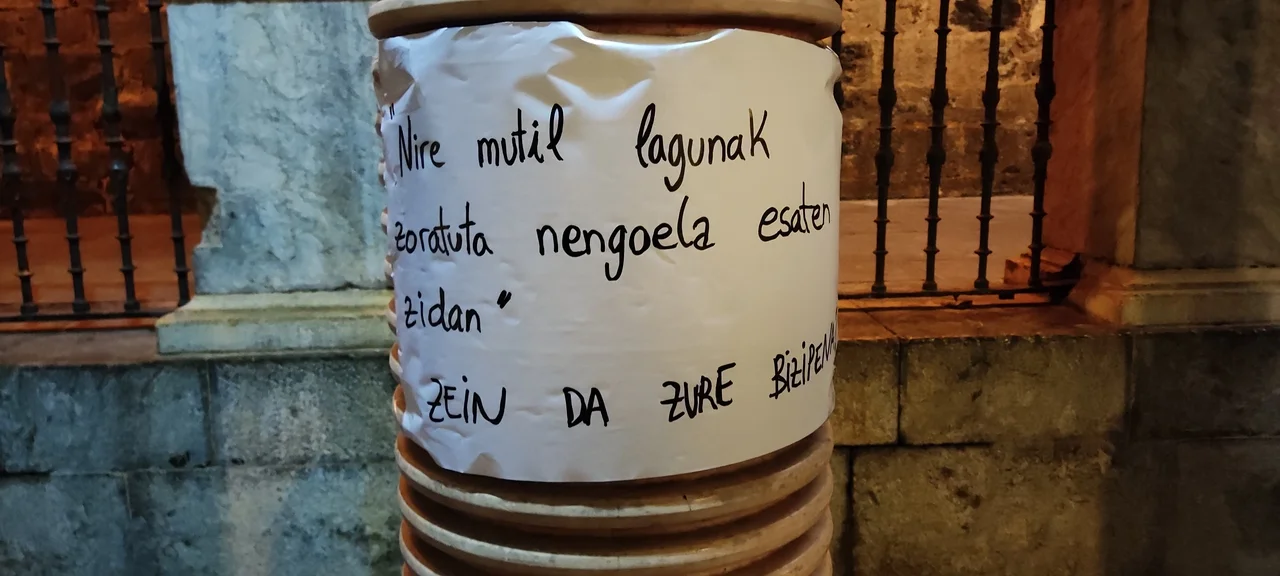 "Nire mutil lagunak
zoratuta nengoela esaten
zidan"
ZEIN DA ZURE BIZIPENA